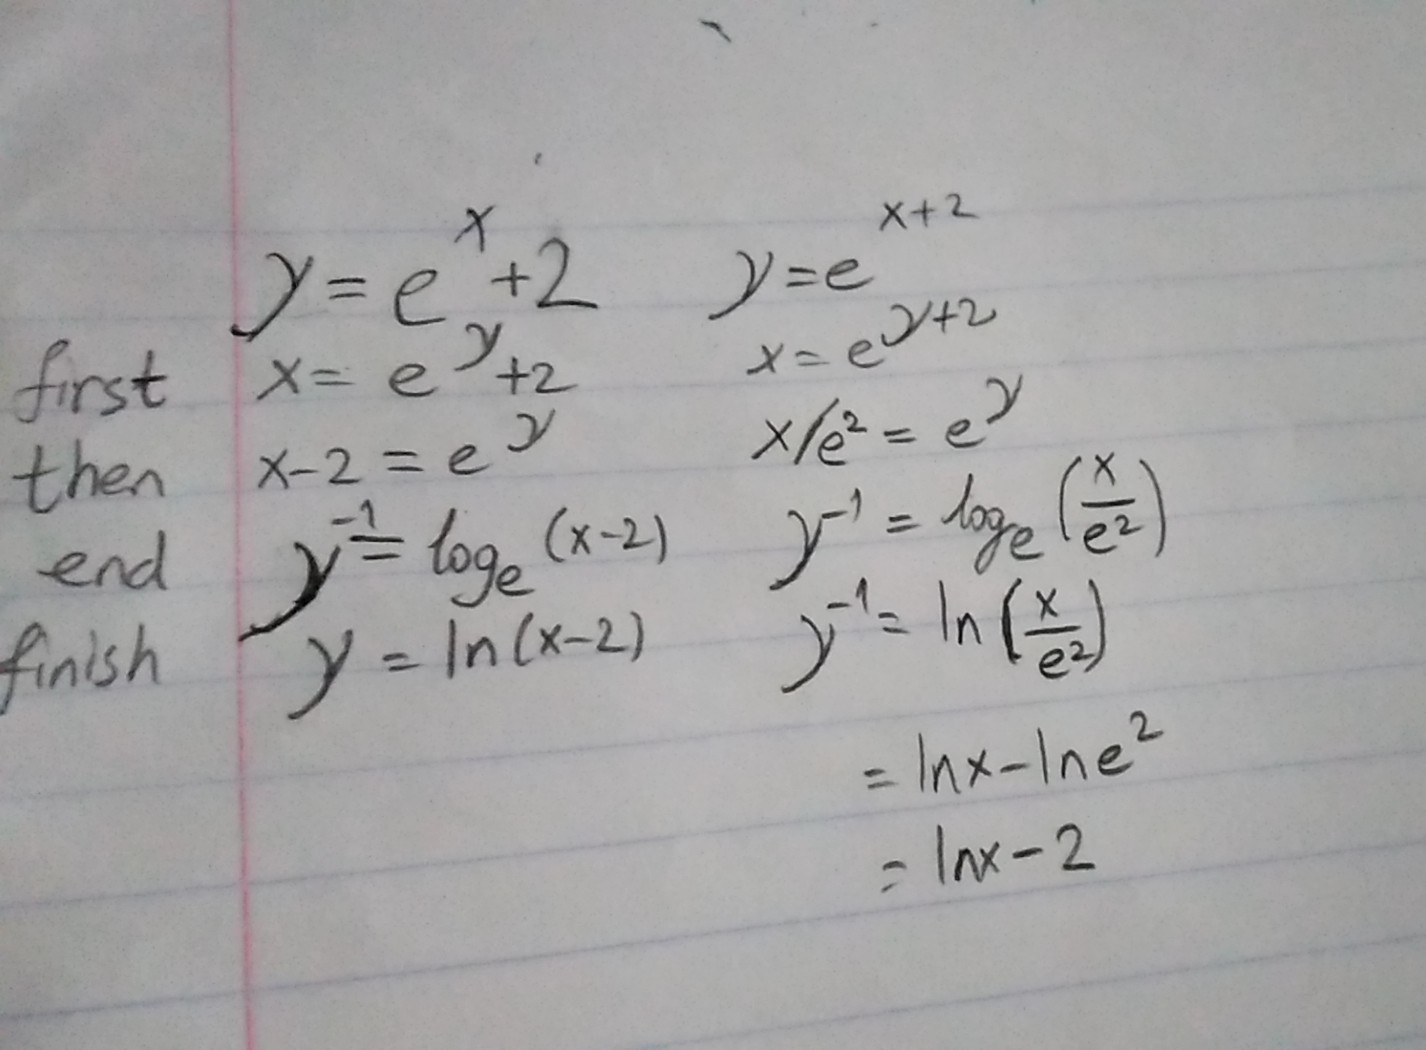 y = e^x + 2 y = e^{x+2}
first x = e^y + 2 x = e^{y+2}
then x - 2 = e^y x/e^2 = e^y
end y^{-1} = log_e (x-2) y^{-1} = log_e (x/e^2)
finish y = ln(x-2) y^{-1} = ln (x/e^2)
= lnx - lne^2
= lnx - 2